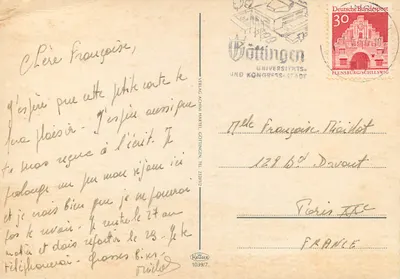 Chère Françoise,
J'espère que cette petite carte te
fera plaisir. J'espère aussi que
tu mas reçue à l'écrit. Je
prolonge un peu mon séjour ici
et je sais bien que je ne pourrai
pas te revoir. Je rentre le 27 au
matin et dois repartir le 29. Je te
téléphonerai. Grosses bises
Michel
VERLAG
Göttingen
UNIVERSITÄTS-
UND KONGRESS-STADT
30
Deutsche Bundespost
FLENSBURG/SCHLESWIG
Mlle Françoise
128 Bd Davout
Paris XXe
FRANCE